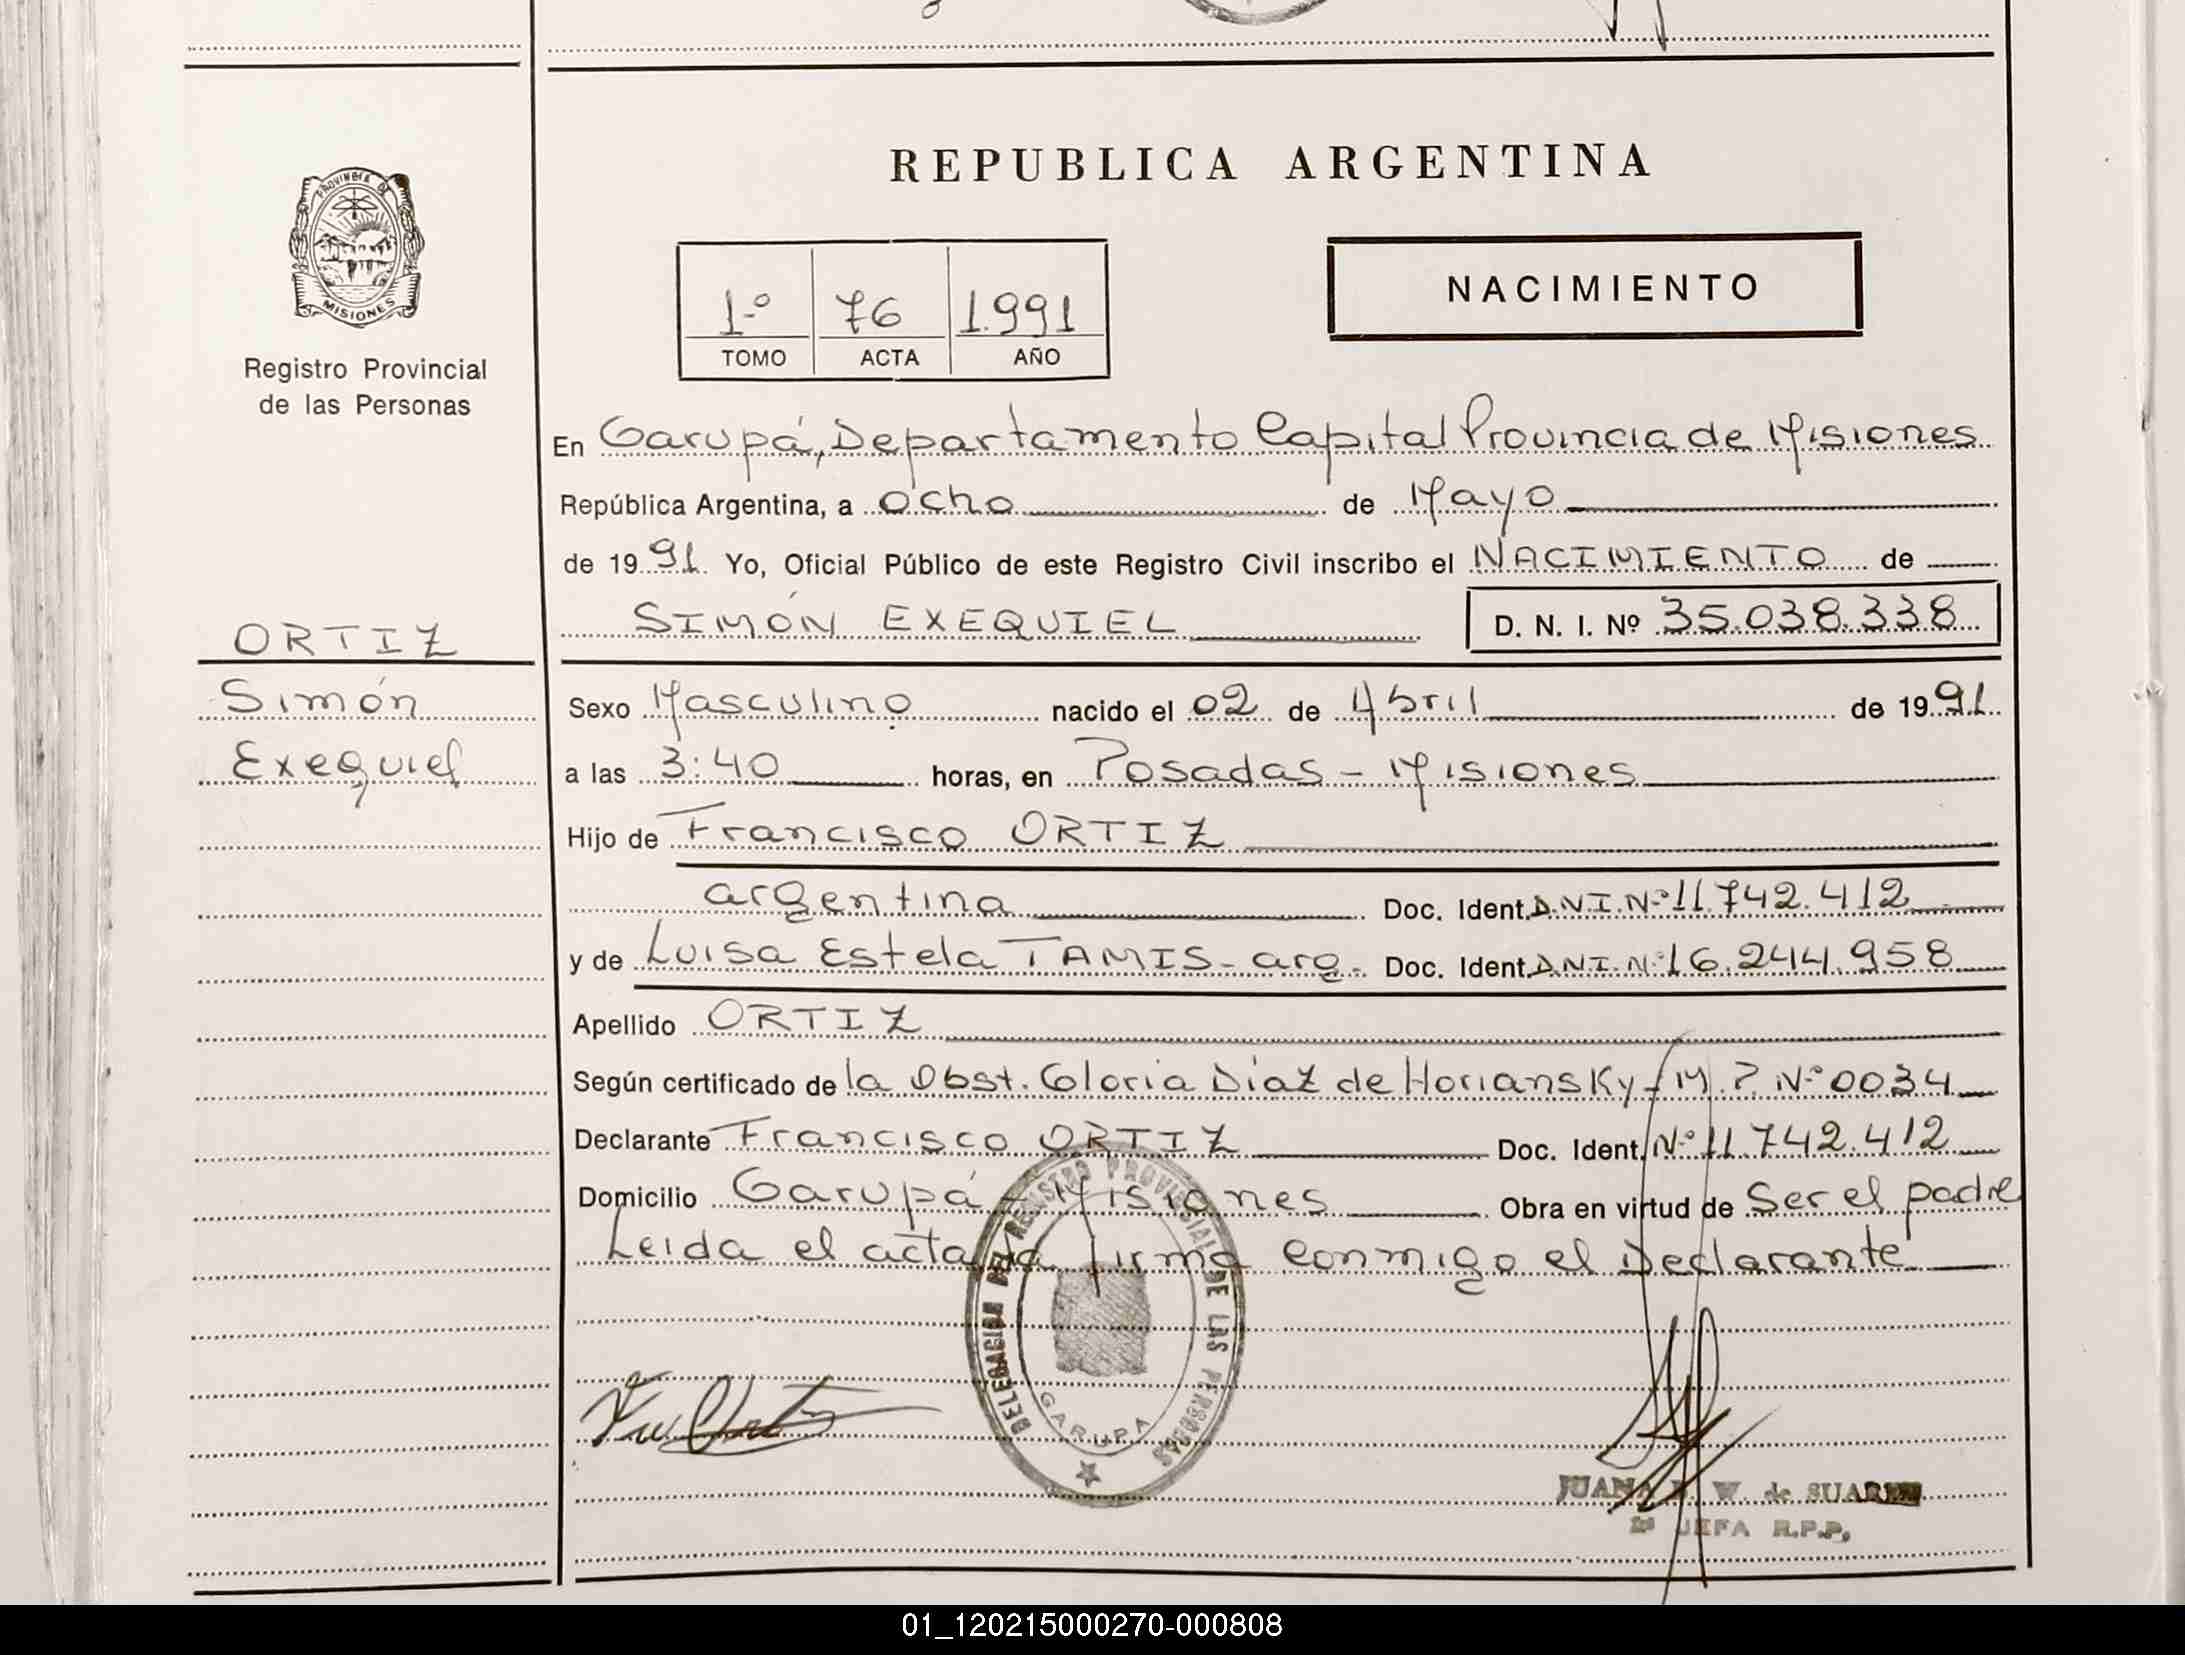 REPUBLICA ARGENTINA
PROVINCIA DE
MISIONES
Registro Provincial
de las Personas
1º 76 1.991
TOMO ACTA AÑO
NACIMIENTO
En Garupá, Departamento Capital Provincia de Misiones
República Argentina, a ocho de Mayo
de 1991 Yo, Oficial Público de este Registro Civil inscribo el NACIMIENTO de
SIMÓN EXEQUIEL D. N. I. Nº 35.038.338
ORTIZ
Simón
Exequiel
Sexo Masculino nacido el 02 de Abril de 1991
a las 3:40 horas, en Posadas - Misiones
Hijo de Francisco ORTIZ
argentina Doc. Ident. D.N.I.Nº 11.742.412
y de Luisa Estela TAMIS - arg. Doc. Ident. D.N.I.Nº 16.244.958
Apellido ORTIZ
Según certificado de la Obst. Gloria Diaz de Horiansky - M.P. Nº 0034
Declarante Francisco ORTIZ Doc. Ident. Nº 11.742.412
Domicilio Garupá - Misiones Obra en virtud de Ser el padre
Leida el acta la firma conmigo el Declarante
DELEGACION DEL REGISTRO PROVINCIAL DE LAS PERSONAS
GARUPA
JUANA W. de SUAREZ
JEFA R.P.P.
01_120215000270-000808